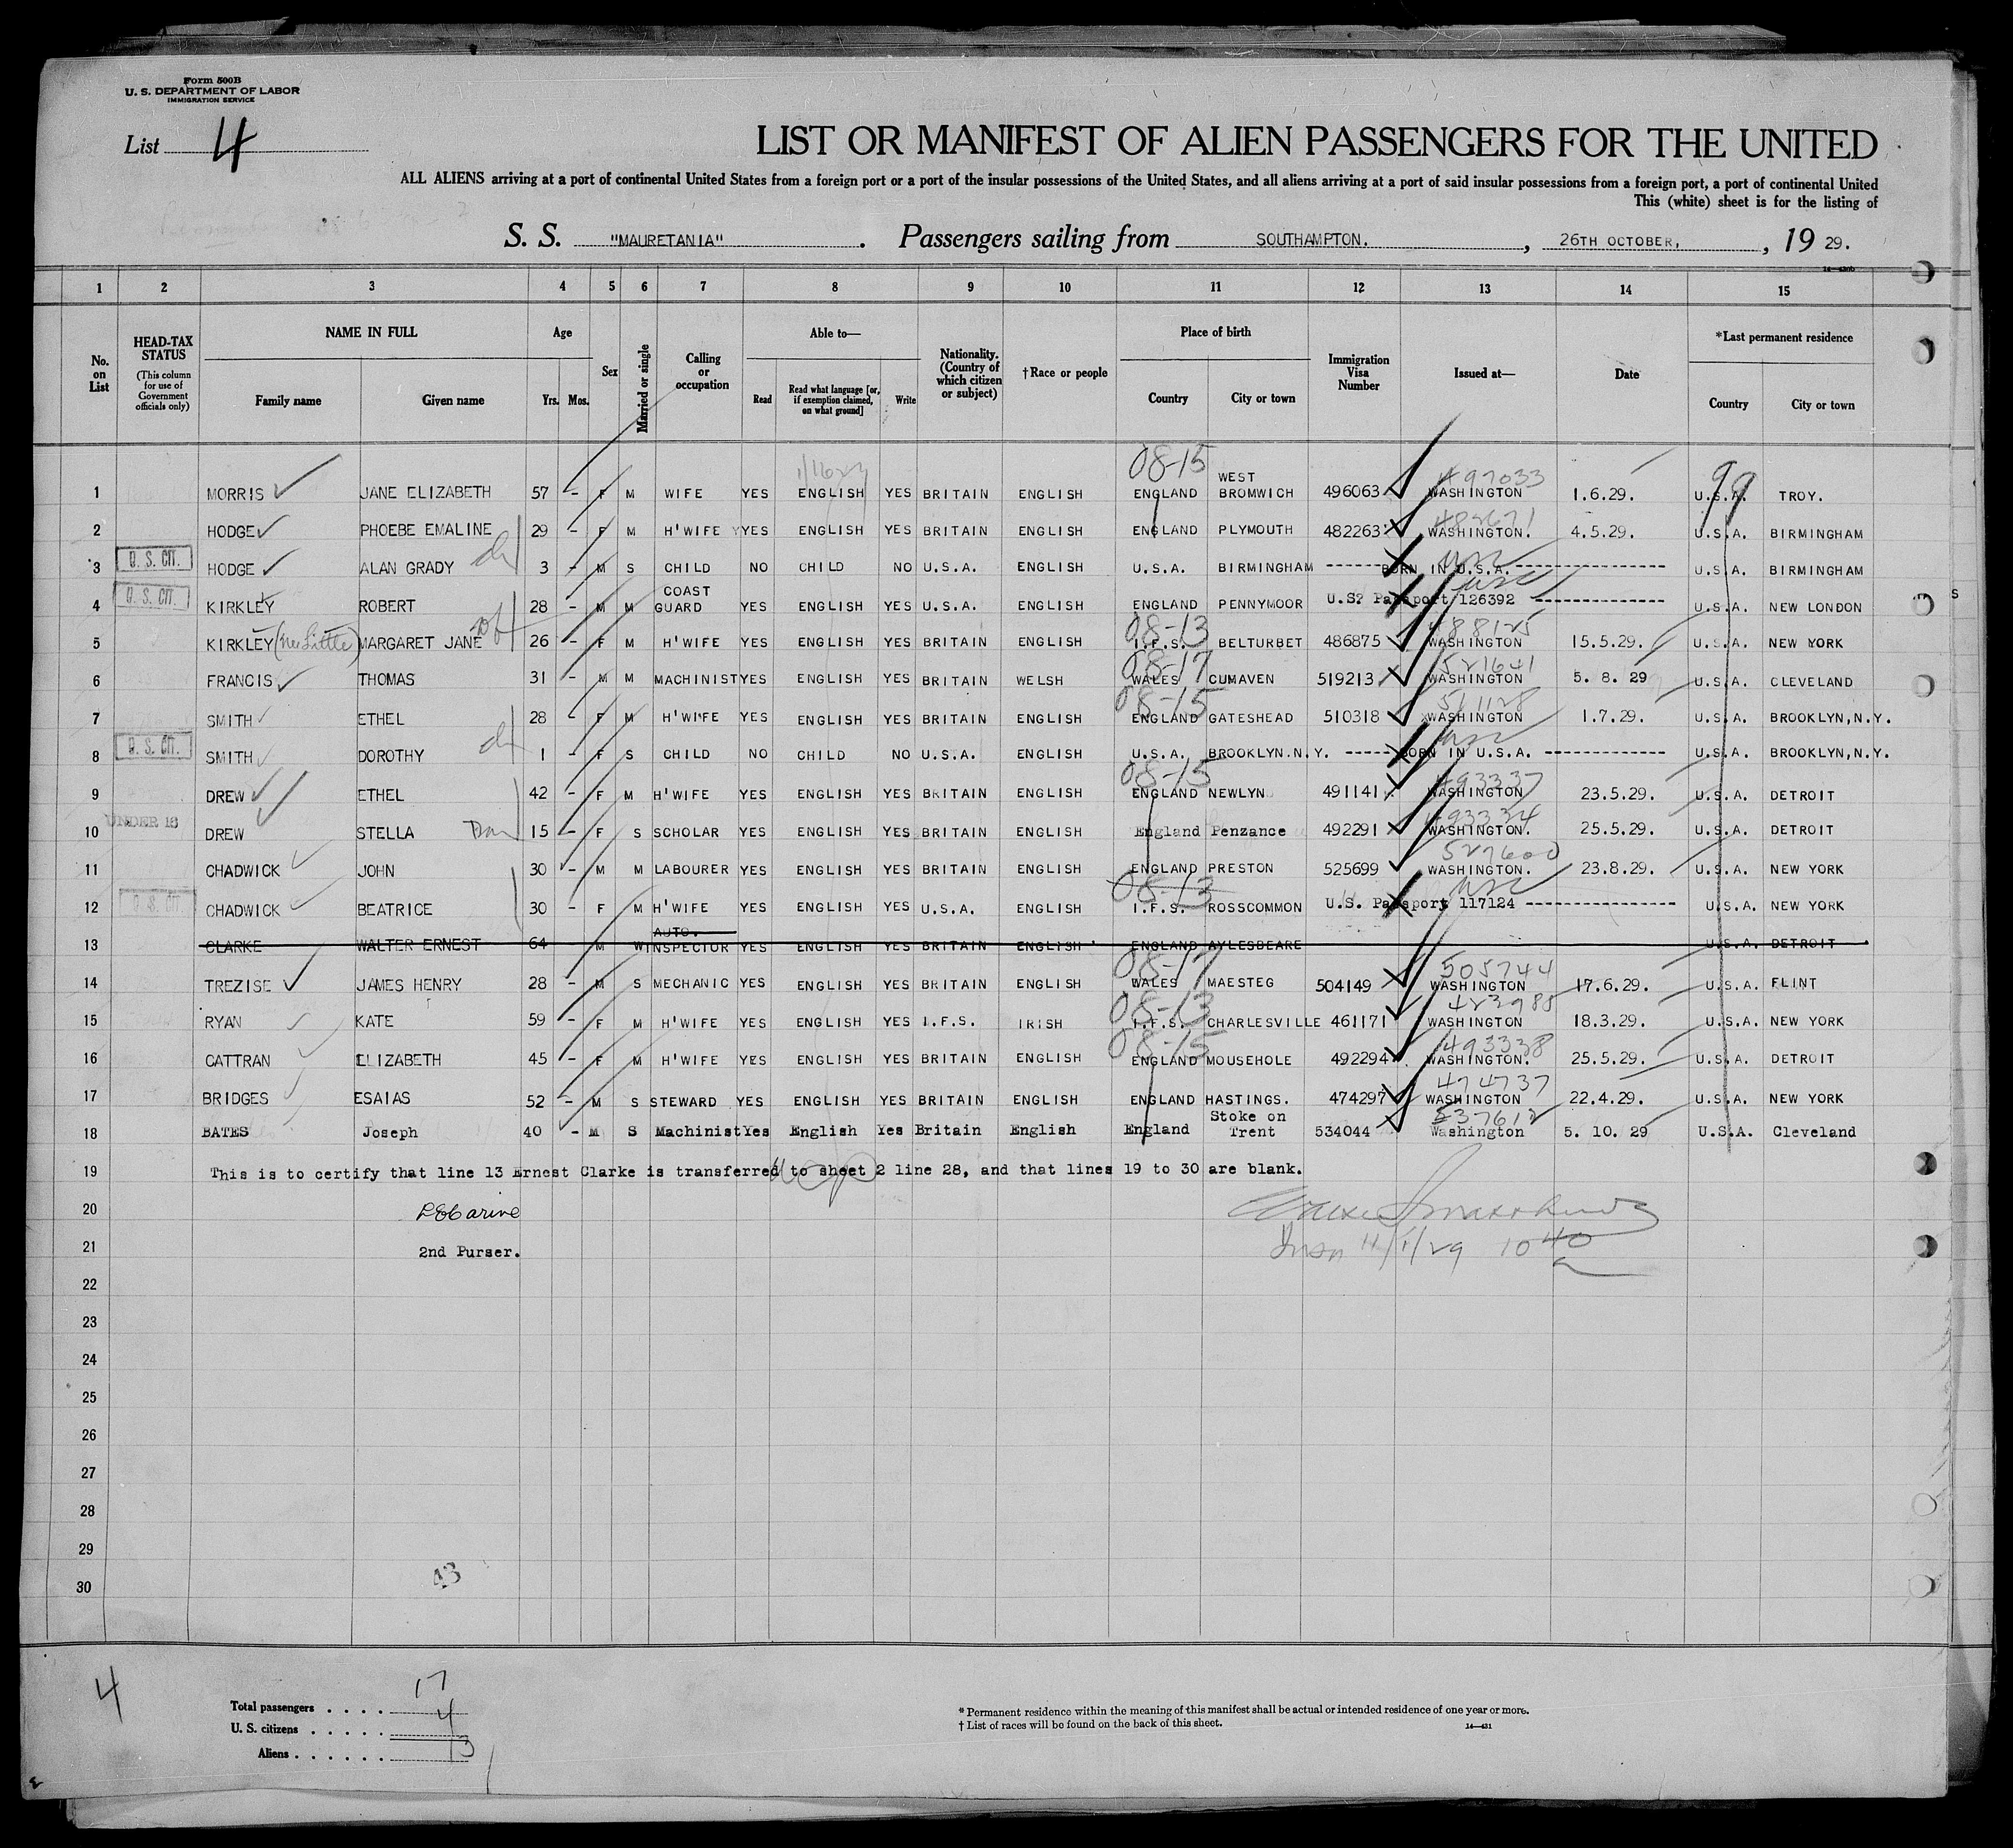 Form 500B
U. S. DEPARTMENT OF LABOR
IMMIGRATION SERVICE
List 4
LIST OR MANIFEST OF ALIEN PASSENGERS FOR THE UNITED
ALL ALIENS arriving at a port of continental United States from a foreign port or a port of the insular possessions of the United States, and all aliens arriving at a port of said insular possessions from a foreign port, a port of continental United
This (white) sheet is for the listing of
S. S. "MAURETANIA". Passengers sailing from SOUTHAMPTON., 26TH OCTOBER,, 19 29.
1 2 3 4 5 6 7 8 9 10 11 12 13 14 15
No. on List
HEAD-TAX STATUS
(This column for use of Government officials only)
NAME IN FULL
Family name Given name
Age
Yrs. Mos.
Sex
Married or single
Calling or occupation
Able to—
Read Read what language [or, if exemption claimed, on what ground] Write
Nationality. (Country of which citizen or subject)
†Race or people
Place of birth
Country City or town
Immigration Visa Number
Issued at—
Date
*Last permanent residence
Country City or town
08-15 WEST 497033 99
1 MORRIS JANE ELIZABETH 57 - F M WIFE YES ENGLISH YES BRITAIN ENGLISH ENGLAND BROMWICH 496063 WASHINGTON 1.6.29. U.S.A. TROY.
2 HODGE PHOEBE EMALINE 29 - F M H'WIFE YES ENGLISH YES BRITAIN ENGLISH ENGLAND PLYMOUTH 482263 WASHINGTON. 4.5.29. U.S.A. BIRMINGHAM
U. S. CIT.
3 HODGE ALAN GRADY ch 3 - M S CHILD NO CHILD NO U.S.A. ENGLISH U.S.A. BIRMINGHAM ------ BORN IN U.S.A. ---------------- U.S.A. BIRMINGHAM
U. S. CIT. COAST USC
4 KIRKLEY ROBERT 28 - M M GUARD YES ENGLISH YES U.S.A. ENGLISH ENGLAND PENNYMOOR U.S. Passport 126392 -------------- U.S.A. NEW LONDON
08-13 488125
5 KIRKLEY (nee Little) MARGARET JANE 26 - F M H'WIFE YES ENGLISH YES BRITAIN ENGLISH I.F.S. BELTURBET 486875 WASHINGTON 15.5.29. U.S.A. NEW YORK
08-17 521641
6 FRANCIS THOMAS 31 - M M MACHINIST YES ENGLISH YES BRITAIN WELSH WALES CUMAVEN 519213 WASHINGTON 5. 8. 29 U.S.A. CLEVELAND
08-15 511128
7 SMITH ETHEL 28 - F M H'WIFE YES ENGLISH YES BRITAIN ENGLISH ENGLAND GATESHEAD 510318 WASHINGTON 1.7.29. U.S.A. BROOKLYN,N.Y.
U. S. CIT. USC
8 SMITH DOROTHY ch 1 - F S CHILD NO CHILD NO U.S.A. ENGLISH U.S.A. BROOKLYN.N.Y. ----- BORN IN U.S.A. ------------- U.S.A. BROOKLYN,N.Y.
08-15 493337
9 DREW ETHEL 42 - F M H'WIFE YES ENGLISH YES BRITAIN ENGLISH ENGLAND NEWLYN 491141 WASHINGTON 23.5.29. U.S.A. DETROIT
UNDER 16 493334
10 DREW STELLA Dau 15 - F S SCHOLAR YES ENGLISH YES BRITAIN ENGLISH England Penzance 492291 WASHINGTON. 25.5.29. U.S.A. DETROIT
527600
11 CHADWICK JOHN 30 - M M LABOURER YES ENGLISH YES BRITAIN ENGLISH ENGLAND PRESTON 525699 WASHINGTON. 23.8.29. U.S.A. NEW YORK
U. S. CIT. 08-13 USC
12 CHADWICK BEATRICE 30 - F M H'WIFE YES ENGLISH YES U.S.A. ENGLISH I.F.S. ROSSCOMMON U.S. Passport 117124 ---------------- U.S.A. NEW YORK
AUTO.
13 CLARKE WALTER ERNEST 64 - M W INSPECTOR YES ENGLISH YES BRITAIN ENGLISH ENGLAND AYLESBEARE U.S.A. DETROIT
08-17 505744
14 TREZISE JAMES HENRY 28 - M S MECHANIC YES ENGLISH YES BRITAIN ENGLISH WALES MAESTEG 504149 WASHINGTON 17.6.29. U.S.A. FLINT
08-13
15 RYAN KATE 59 - F M H'WIFE YES ENGLISH YES I.F.S. IRISH I.F.S. CHARLESVILLE 461171 WASHINGTON 18.3.29. U.S.A. NEW YORK
08-15 493338
16 CATTRAN ELIZABETH 45 - F M H'WIFE YES ENGLISH YES BRITAIN ENGLISH ENGLAND MOUSEHOLE 492294 WASHINGTON. 25.5.29. U.S.A. DETROIT
474737
17 BRIDGES ESAIAS 52 - M S STEWARD YES ENGLISH YES BRITAIN ENGLISH ENGLAND HASTINGS. 474297 WASHINGTON 22.4.29. U.S.A. NEW YORK
Stoke on 537612
18 BATES Joseph 40 - M S Machinist Yes English Yes Britain English England Trent 534044 Washington 5. 10. 29 U.S.A. Cleveland
19 This is to certify that line 13 Ernest Clarke is transferred to sheet 2 line 28, and that lines 19 to 30 are blank.
20
21 2nd Purser. 11/1/29 10 40
22
23
24
25
26
27
28
29
30
43
4
Total passengers . . . . 17
U. S. citizens . . . . . 4
Aliens . . . . . . 13
* Permanent residence within the meaning of this manifest shall be actual or intended residence of one year or more.
† List of races will be found on the back of this sheet.
14—431